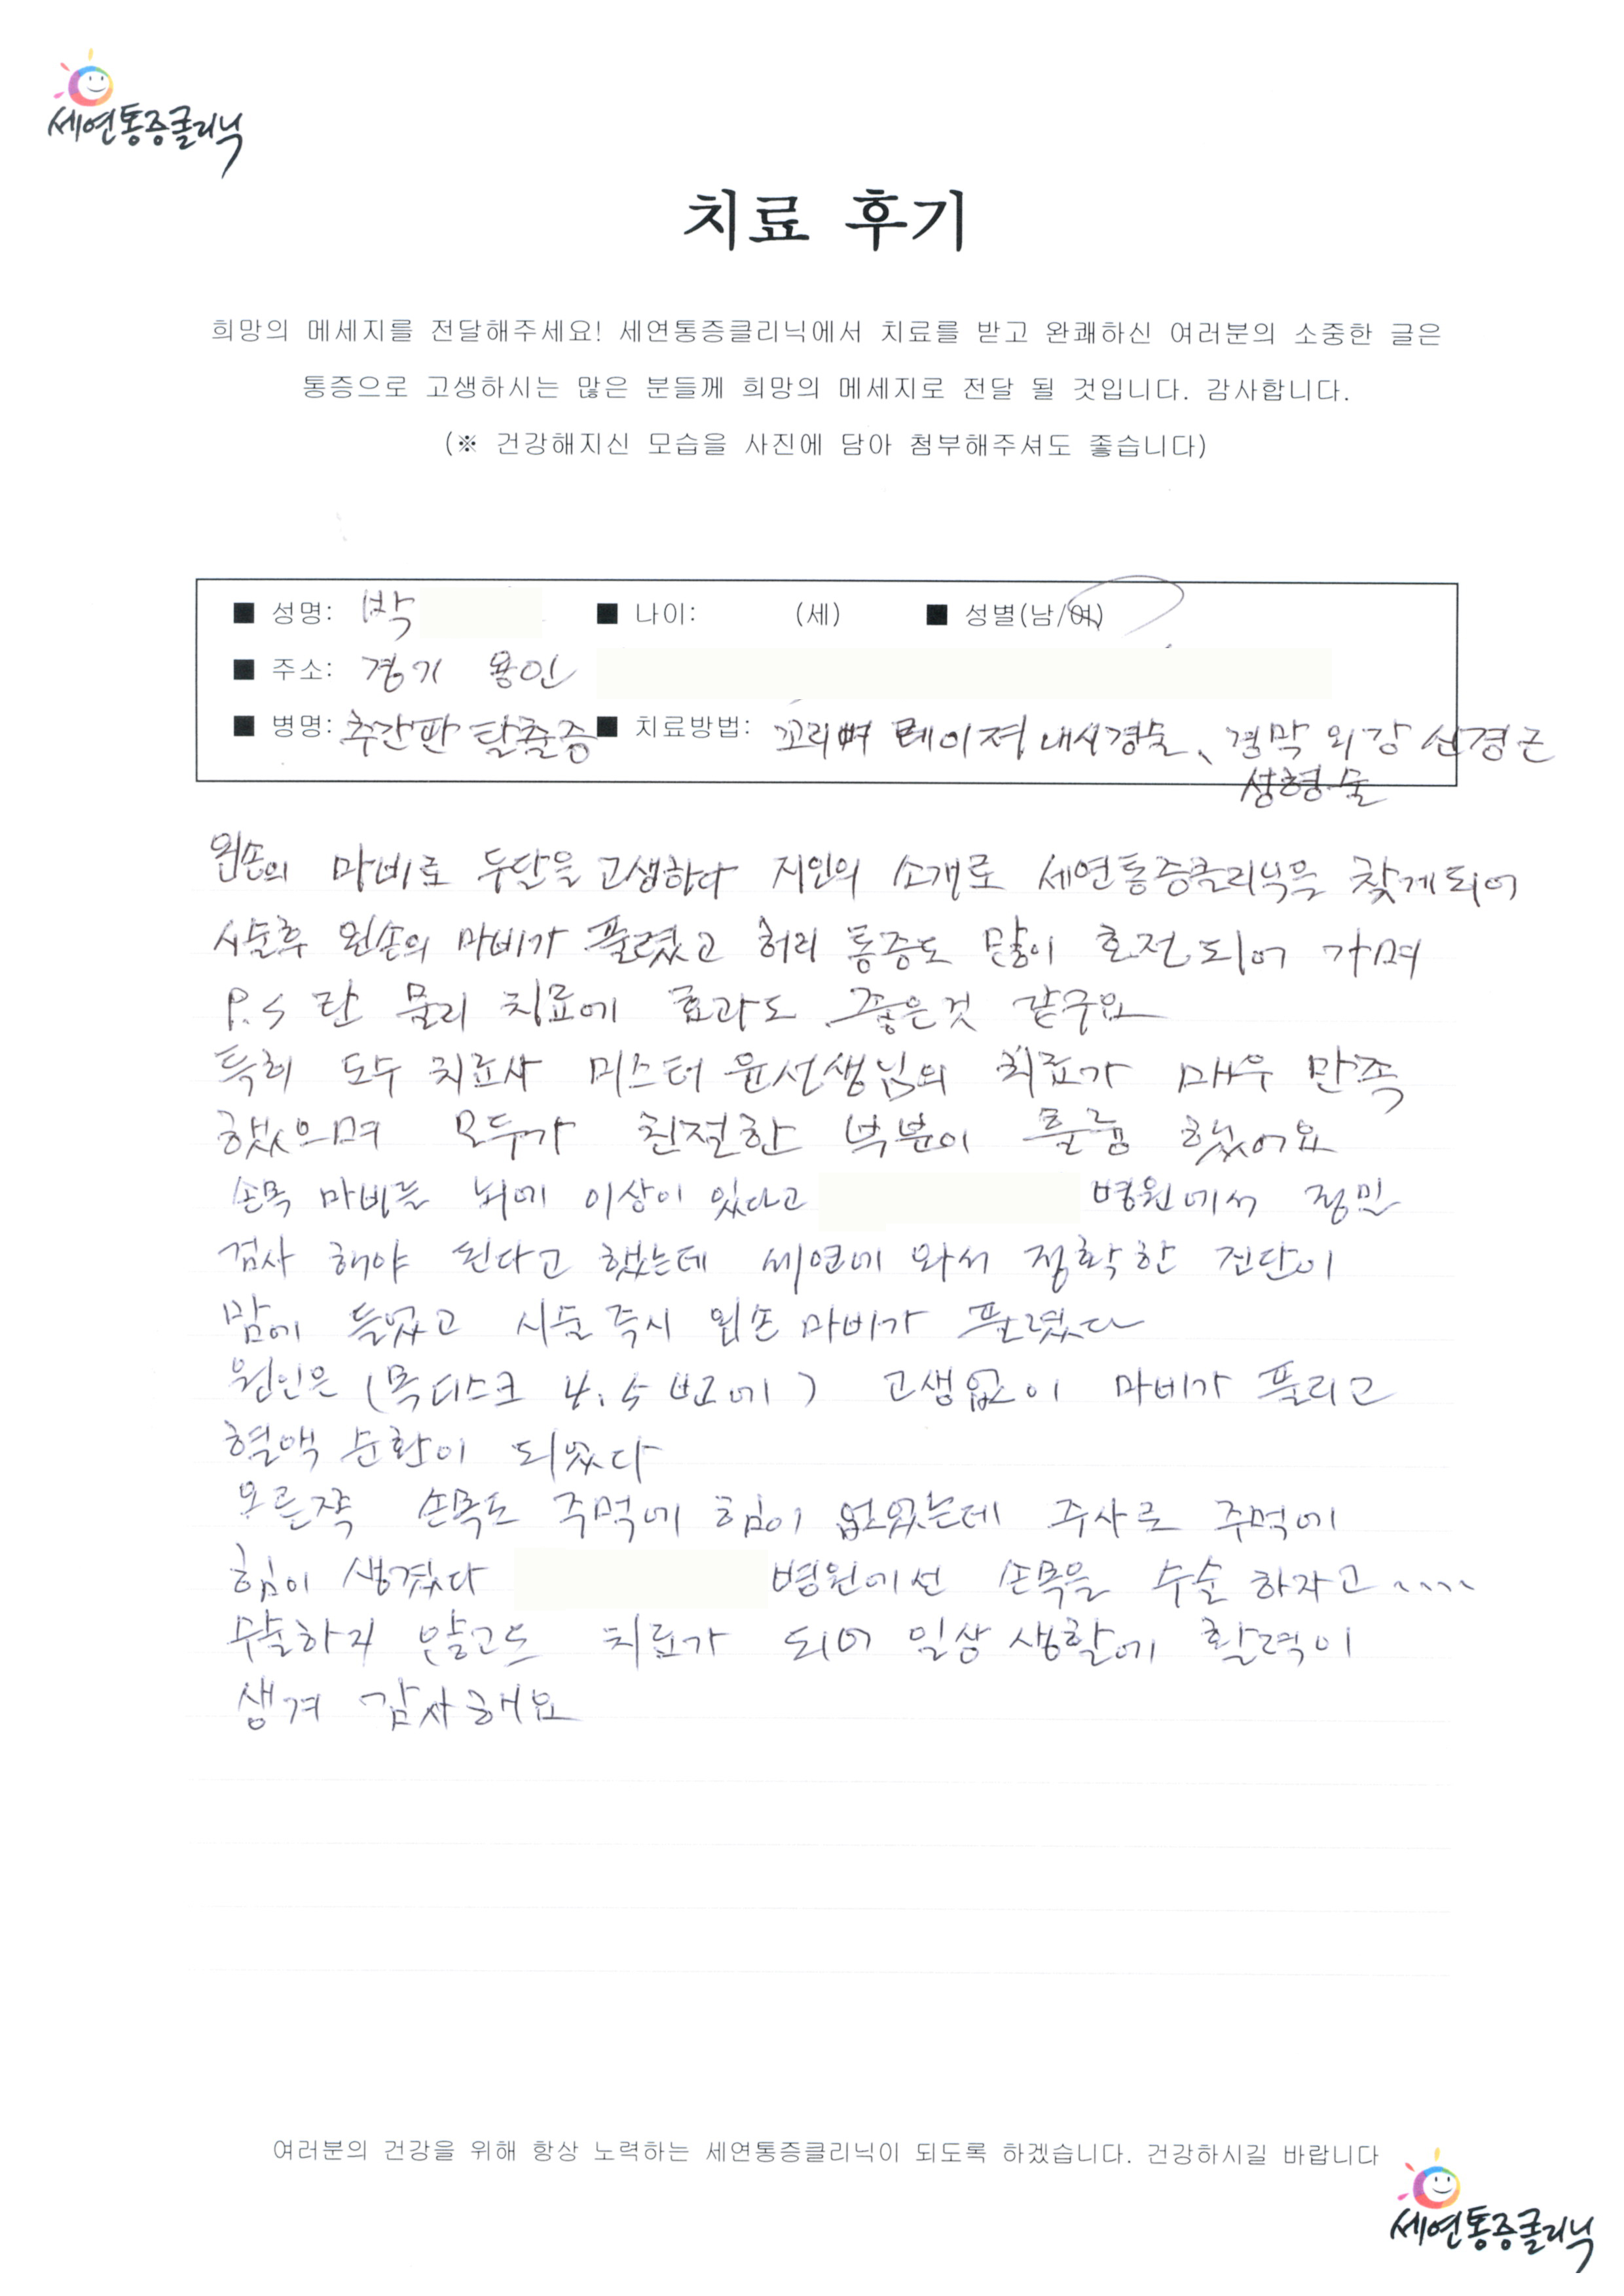 세연통증클리닉
치료 후기
희망의 메세지를 전달해주세요! 세연통증클리닉에서 치료를 받고 완쾌하신 여러분의 소중한 글은
통증으로 고생하시는 많은 분들께 희망의 메세지로 전달 될 것입니다. 감사합니다.
(※ 건강해지신 모습을 사진에 담아 첨부해주셔도 좋습니다)
■ 성명: 박 ■ 나이: (세) ■ 성별(남/여)
■ 주소: 경기 용인
■ 병명: 추간판 탈출증 ■ 치료방법: 꼬리뼈 레이져 내시경술, 경막 외강 신경근
성형술
왼손의 마비로 두달을 고생하다 지인의 소개로 세연통증클리닉을 찾게되어
시술후 왼손의 마비가 풀렸고 허리 통증도 많이 호전되어 가며
P.S 란 물리 치료에 효과도 좋은것 같구요
특히 도수 치료사 미스터 윤선생님의 치료가 매우 만족
했으며 모두가 친절한 부분이 훌륭 했어요
손목 마비를 뇌에 이상이 있다고 병원에서 정밀
검사 해야 된다고 했는데 세연에 와서 정확한 진단이
맘에 들었고 시술 즉시 왼손 마비가 풀렸다
원인은 (목디스크 4.5번에) 고생없이 마비가 풀리고
혈액 순환이 되었다
오른쪽 손목도 주먹에 힘이 없었는데 주사로 주먹에
힘이 생겼다 병원에선 손목을 수술 하자고....
수술하지 않고도 치료가 되어 일상 생활에 활력이
생겨 감사해요
여러분의 건강을 위해 항상 노력하는 세연통증클리닉이 되도록 하겠습니다. 건강하시길 바랍니다
세연통증클리닉